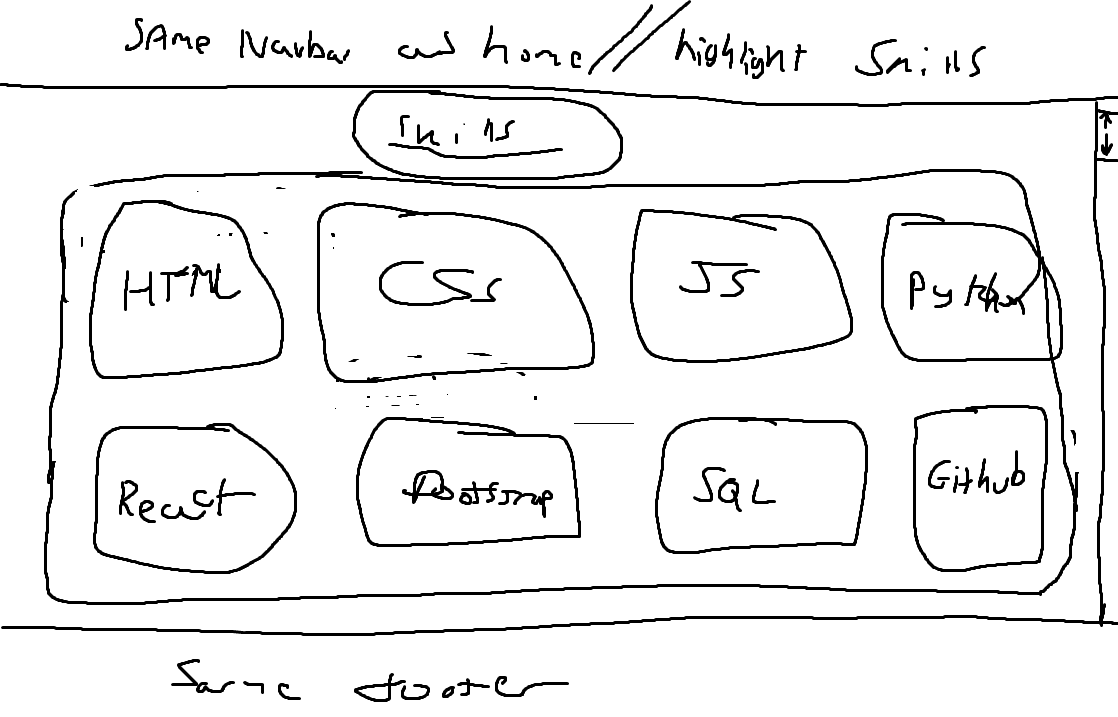 SAME Navbar as home // highlight Skills
Skills
HTML CSS JS Python
React Bootstrap SQL Github
Same footer